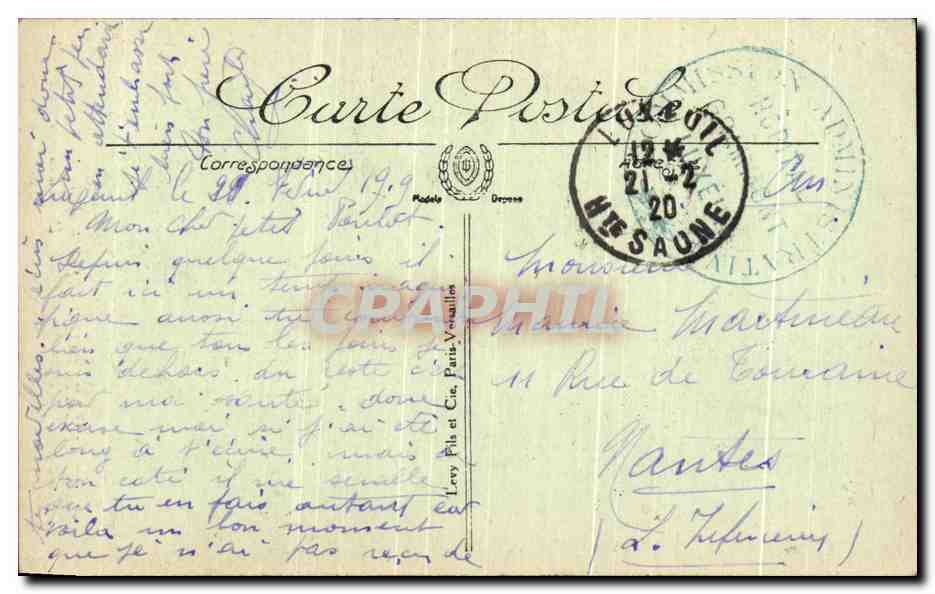 Carte Postale
Correspondance
Adresse
Modèle Déposé
LUXEUIL
12
21-2
20
Hte SAONE
COMMISSION ADMINISTRATIVE
Mon cher petit
Depuis quelque jours il
fait ici un temps
aussi tu
bien que tous les jours je
suis dehors, du reste c'est
pour ma santé, donc
excuse moi si j'ai été
long à t'écrire, mais de
ton coté il me semble
que tu en fais autant car
voila un bon moment
que je n'ai pas reçu de
tes nouvelles.
en attendant
de
bien fort
Ton frère
Levy Fils et Cie, Paris-Versailles
Monsieur
Maurice Martineau
11 Rue de Touraine
Nantes
(L. Inférieure)
CPAPHIL